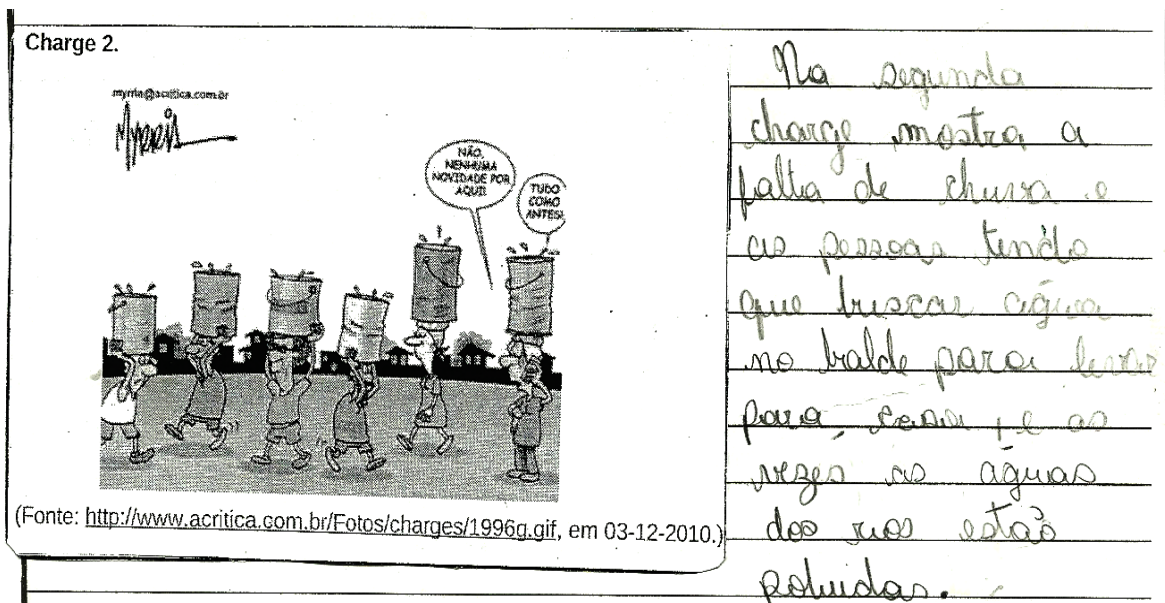 Charge 2.
myrria@acritica.com.br
Myrria
NÃO,
NENHUMA
NOVIDADE POR
AQUI!
TUDO
COMO
ANTES!
(Fonte: http://www.acritica.com.br/Fotos/charges/1996g.gif, em 03-12-2010.)
Na segunda
charge mostra a
falta de chuva e
as pessoas tendo
que buscar água
no balde para levar
para casa, e as
vezes as águas
dos rios estão
poluidas.